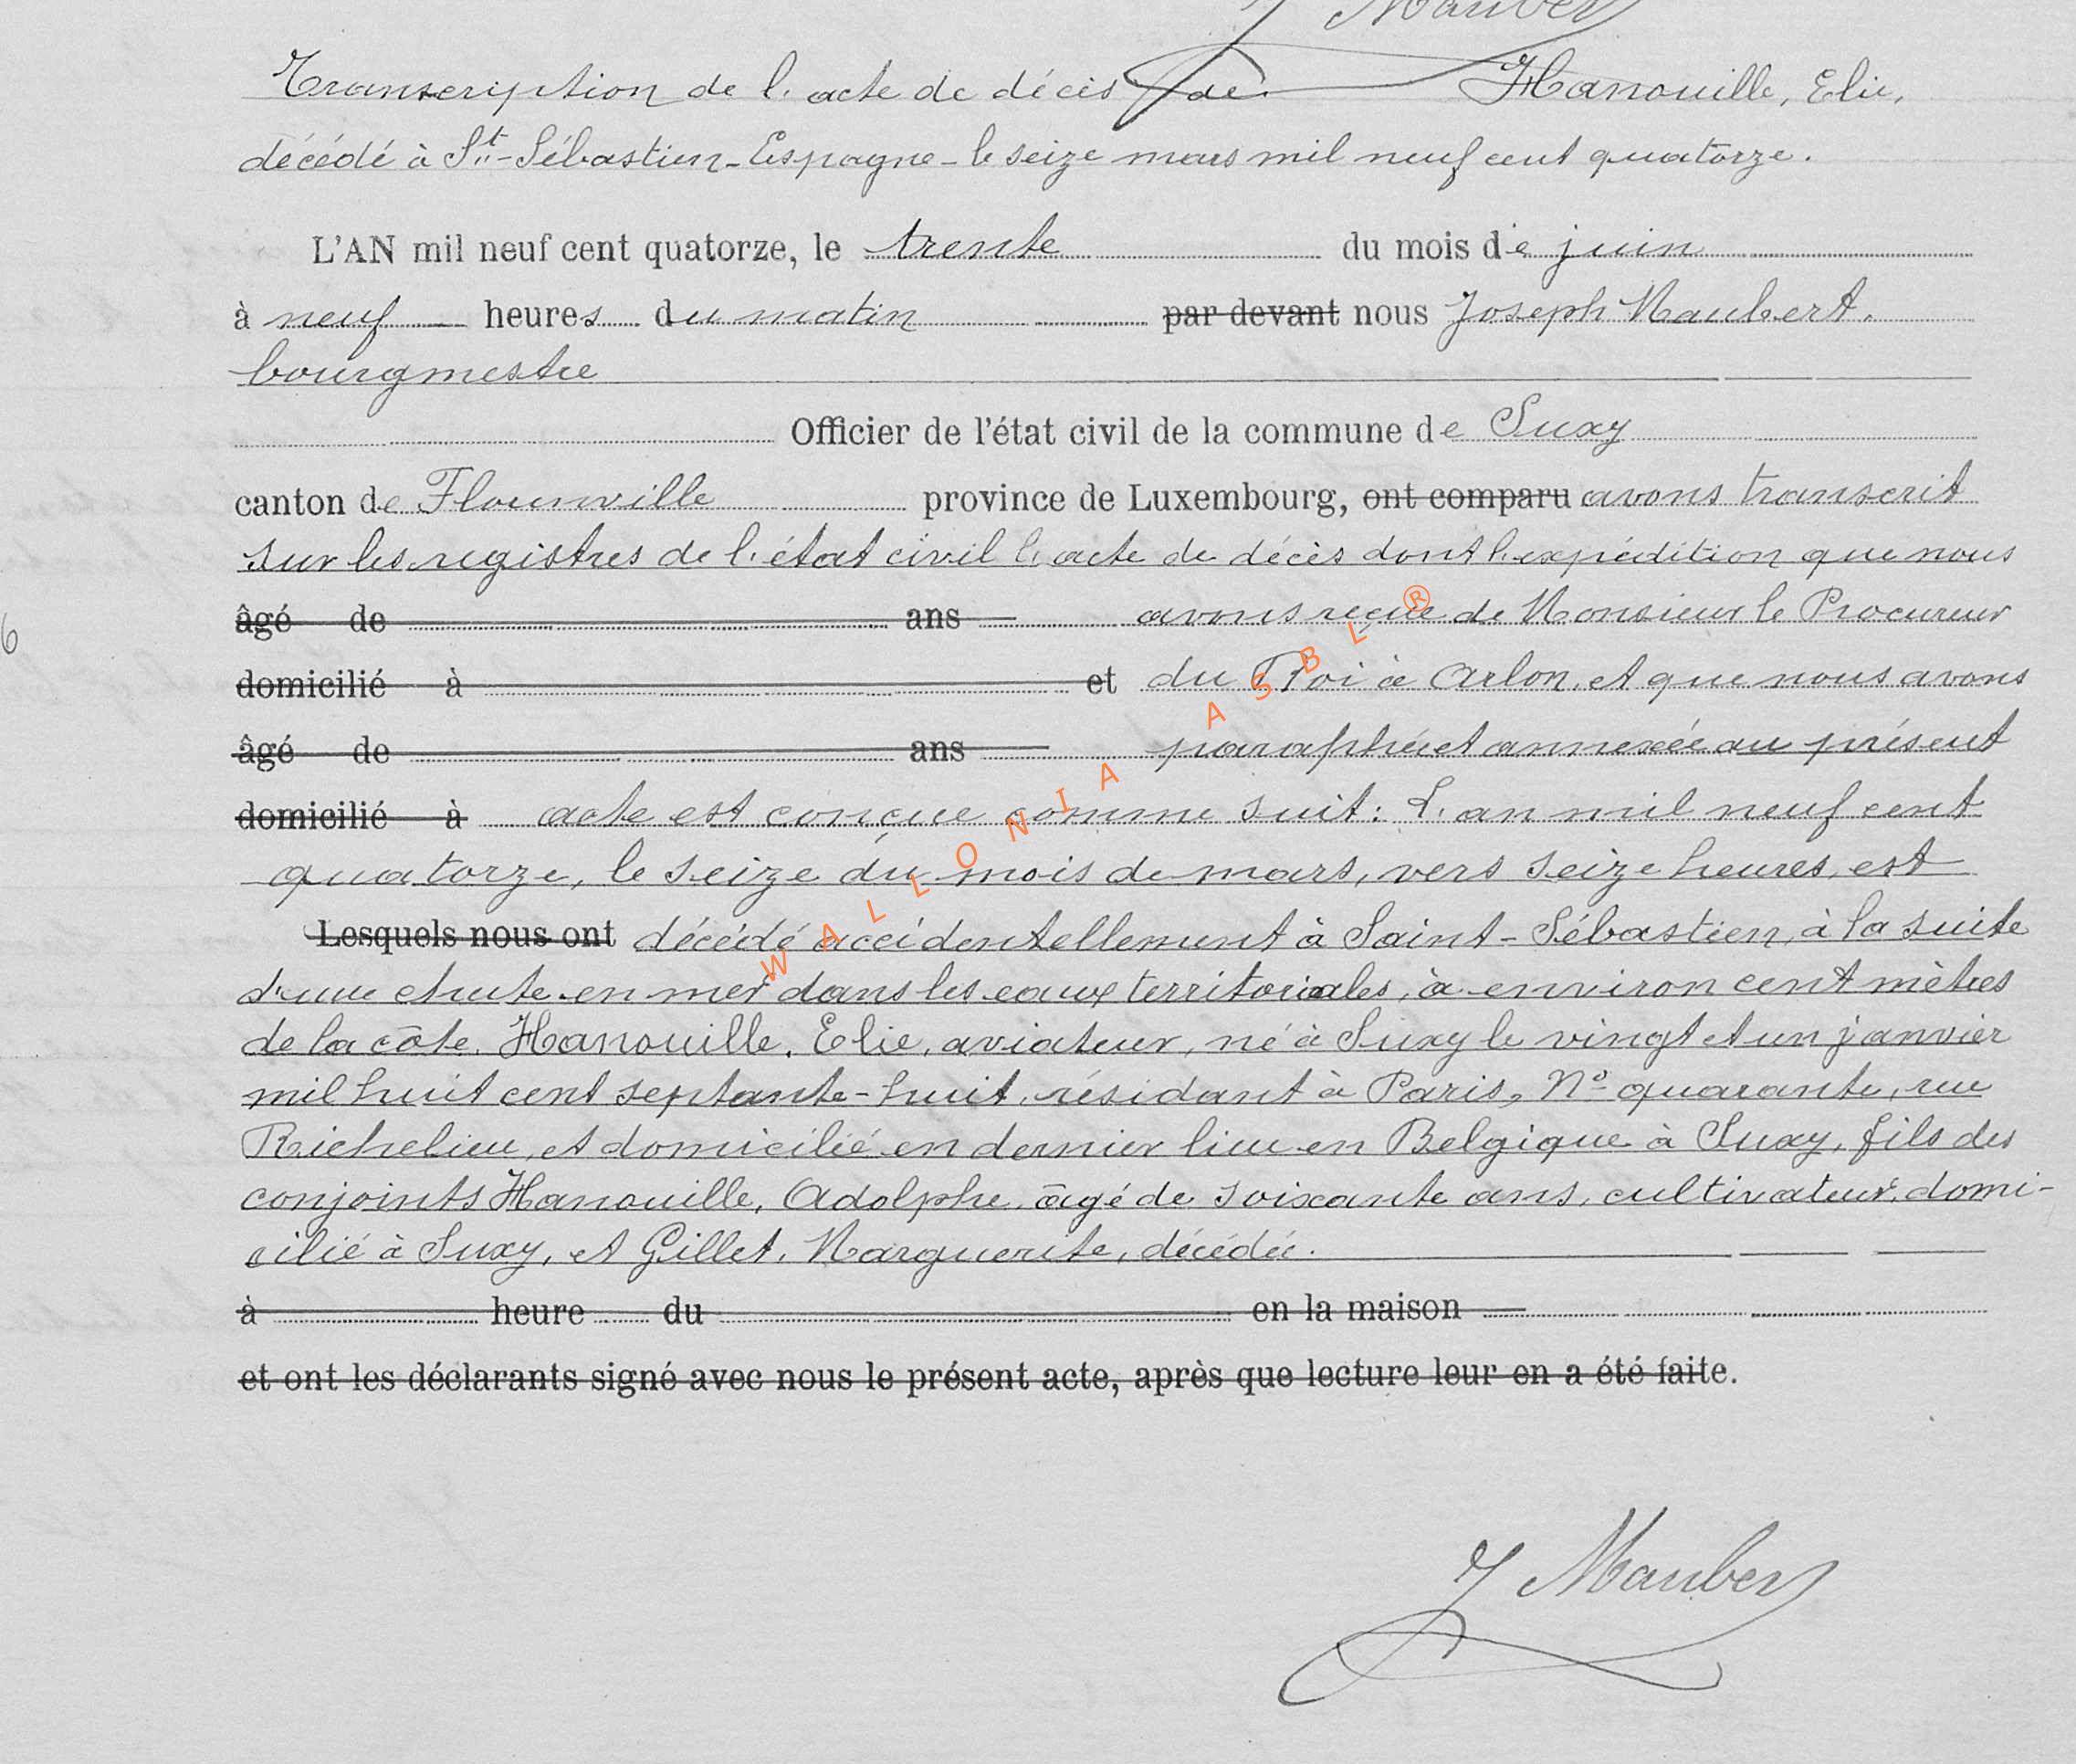 J Maubert
Transcription de l'acte de décès de Hanouille, Elie,
décédé à St-Sébastien-Espagne-le seize mars mil neuf cent quatorze.
L'AN mil neuf cent quatorze, le trente du mois de juin
à neuf heures du matin par devant nous Joseph Maubert,
bourgmestre
Officier de l'état civil de la commune de Suxy
canton de Florenville province de Luxembourg, ont comparu avons transcrit
sur les registres de l'état civil l'acte de décès dont l'expédition que nous
âgé de ans avons reçue de Monsieur le Procureur
domicilié à et du Roi à Arlon, et que nous avons
âgé de ans paraphée et annexée au présent
domicilié à acte est conçue comme suit: L'an mil neuf cent
quatorze, le seize du mois de mars, vers seize heures, est
Lesquels nous ont décédé accidentellement à Saint-Sébastien, à la suite
d'une chute en mer dans les eaux territoriales, à environ cent mètres
de la côte, Hanouille, Elie, aviateur, né à Suxy le vingt et un janvier
mil huit cent septante-huit, résidant à Paris, No quarante, rue
Richelieu, et domicilié en dernier lieu en Belgique à Suxy, fils des
conjoints Hanouille, Adolphe, âgé de soixante ans, cultivateur, domi-
cilié à Suxy, et Gillet, Marguerite, décédée.
à heure du en la maison
et ont les déclarants signé avec nous le présent acte, après que lecture leur en a été faite.
J Maubert
WALLONIA ASBL ®
6